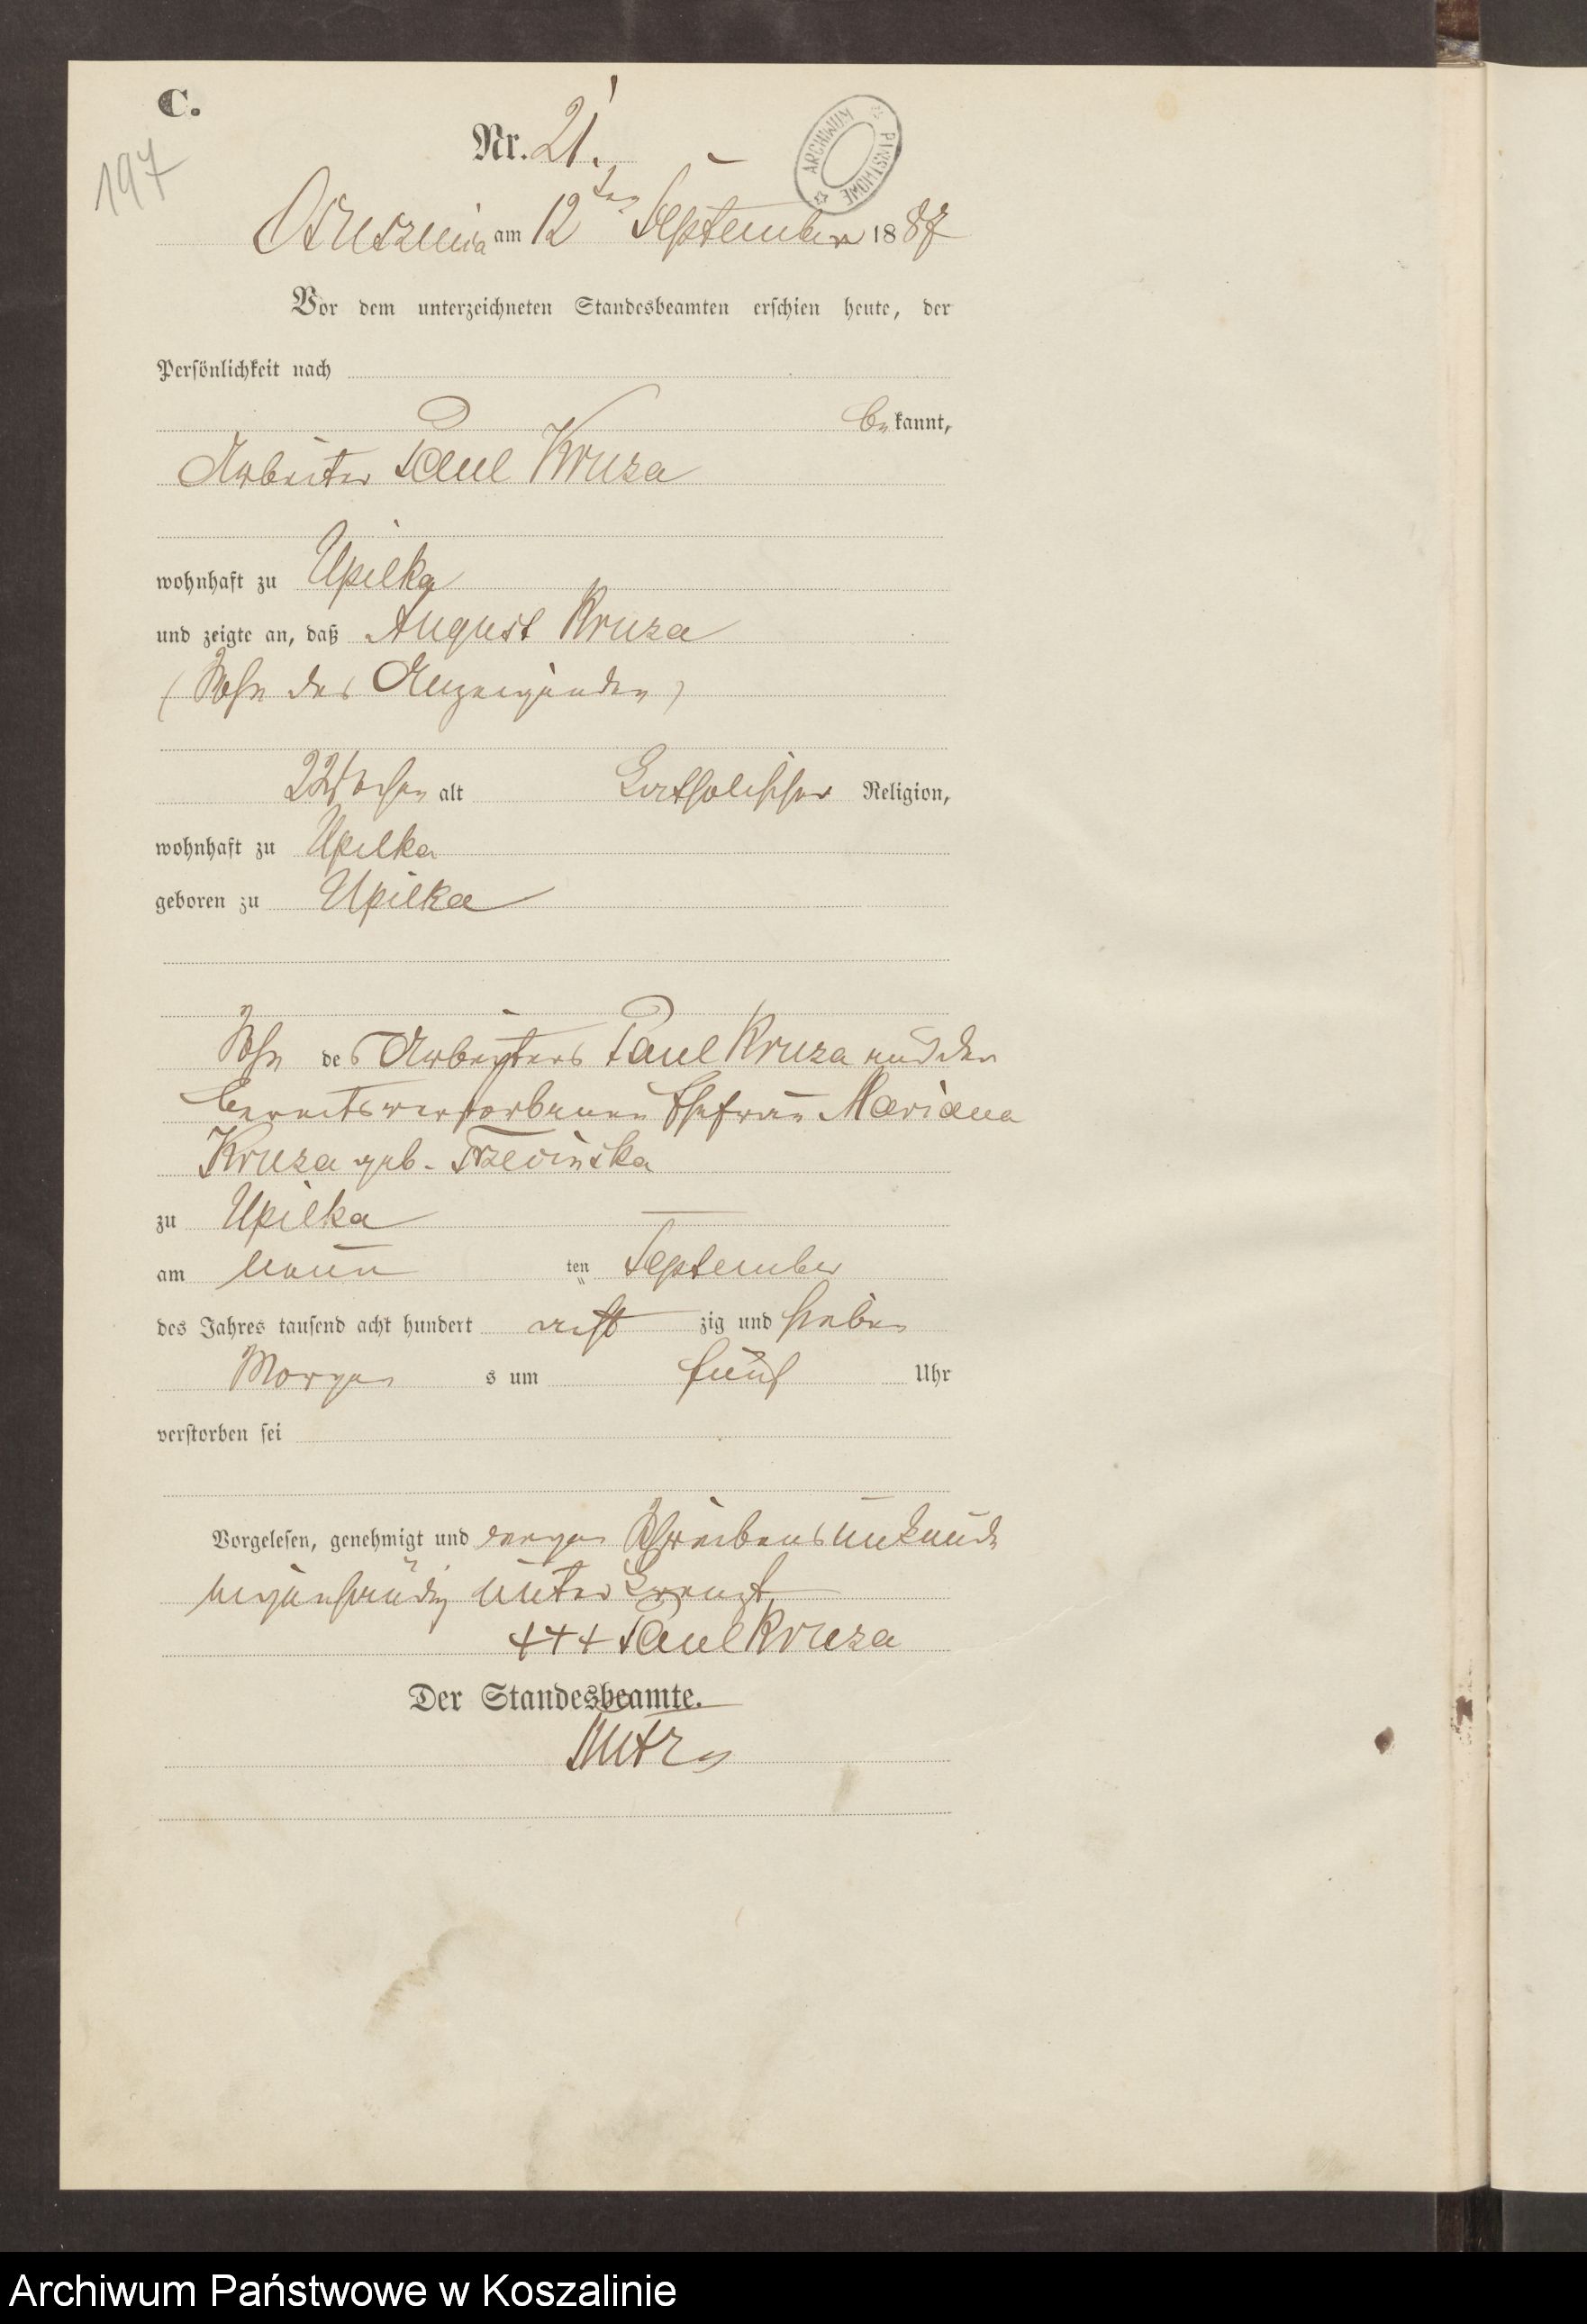 C.
Nr. 21.
197
ARCHIWUM PAŃSTWOWE
Osuszniza am 12ten September 1887
Vor dem unterzeichneten Standesbeamten erschien heute, der
Persönlichkeit nach
be kannt,
Arbeiter Paul Kruza
wohnhaft zu Upilka
und zeigte an, daß August Kruza
(Sohn des Anzeigenden)
2 Wochen alt katholischer Religion,
wohnhaft zu Upilka
geboren zu Upilka
Sohn des Arbeiters Paul Kruza und der
bereits verstorbenen Ehefrau Mariana
Kruza geb. Trzevinska
zu Upilka
am neun ten September
des Jahres tausend acht hundert acht zig und sieben
Morgen s um fünf Uhr
verstorben sei
Vorgelesen, genehmigt und wegen Schreibensunkunde
eigenhändig unterkreuzt
+++ Paul Kruza
Der Standesbeamte.
Archiwum Państwowe w Koszalinie